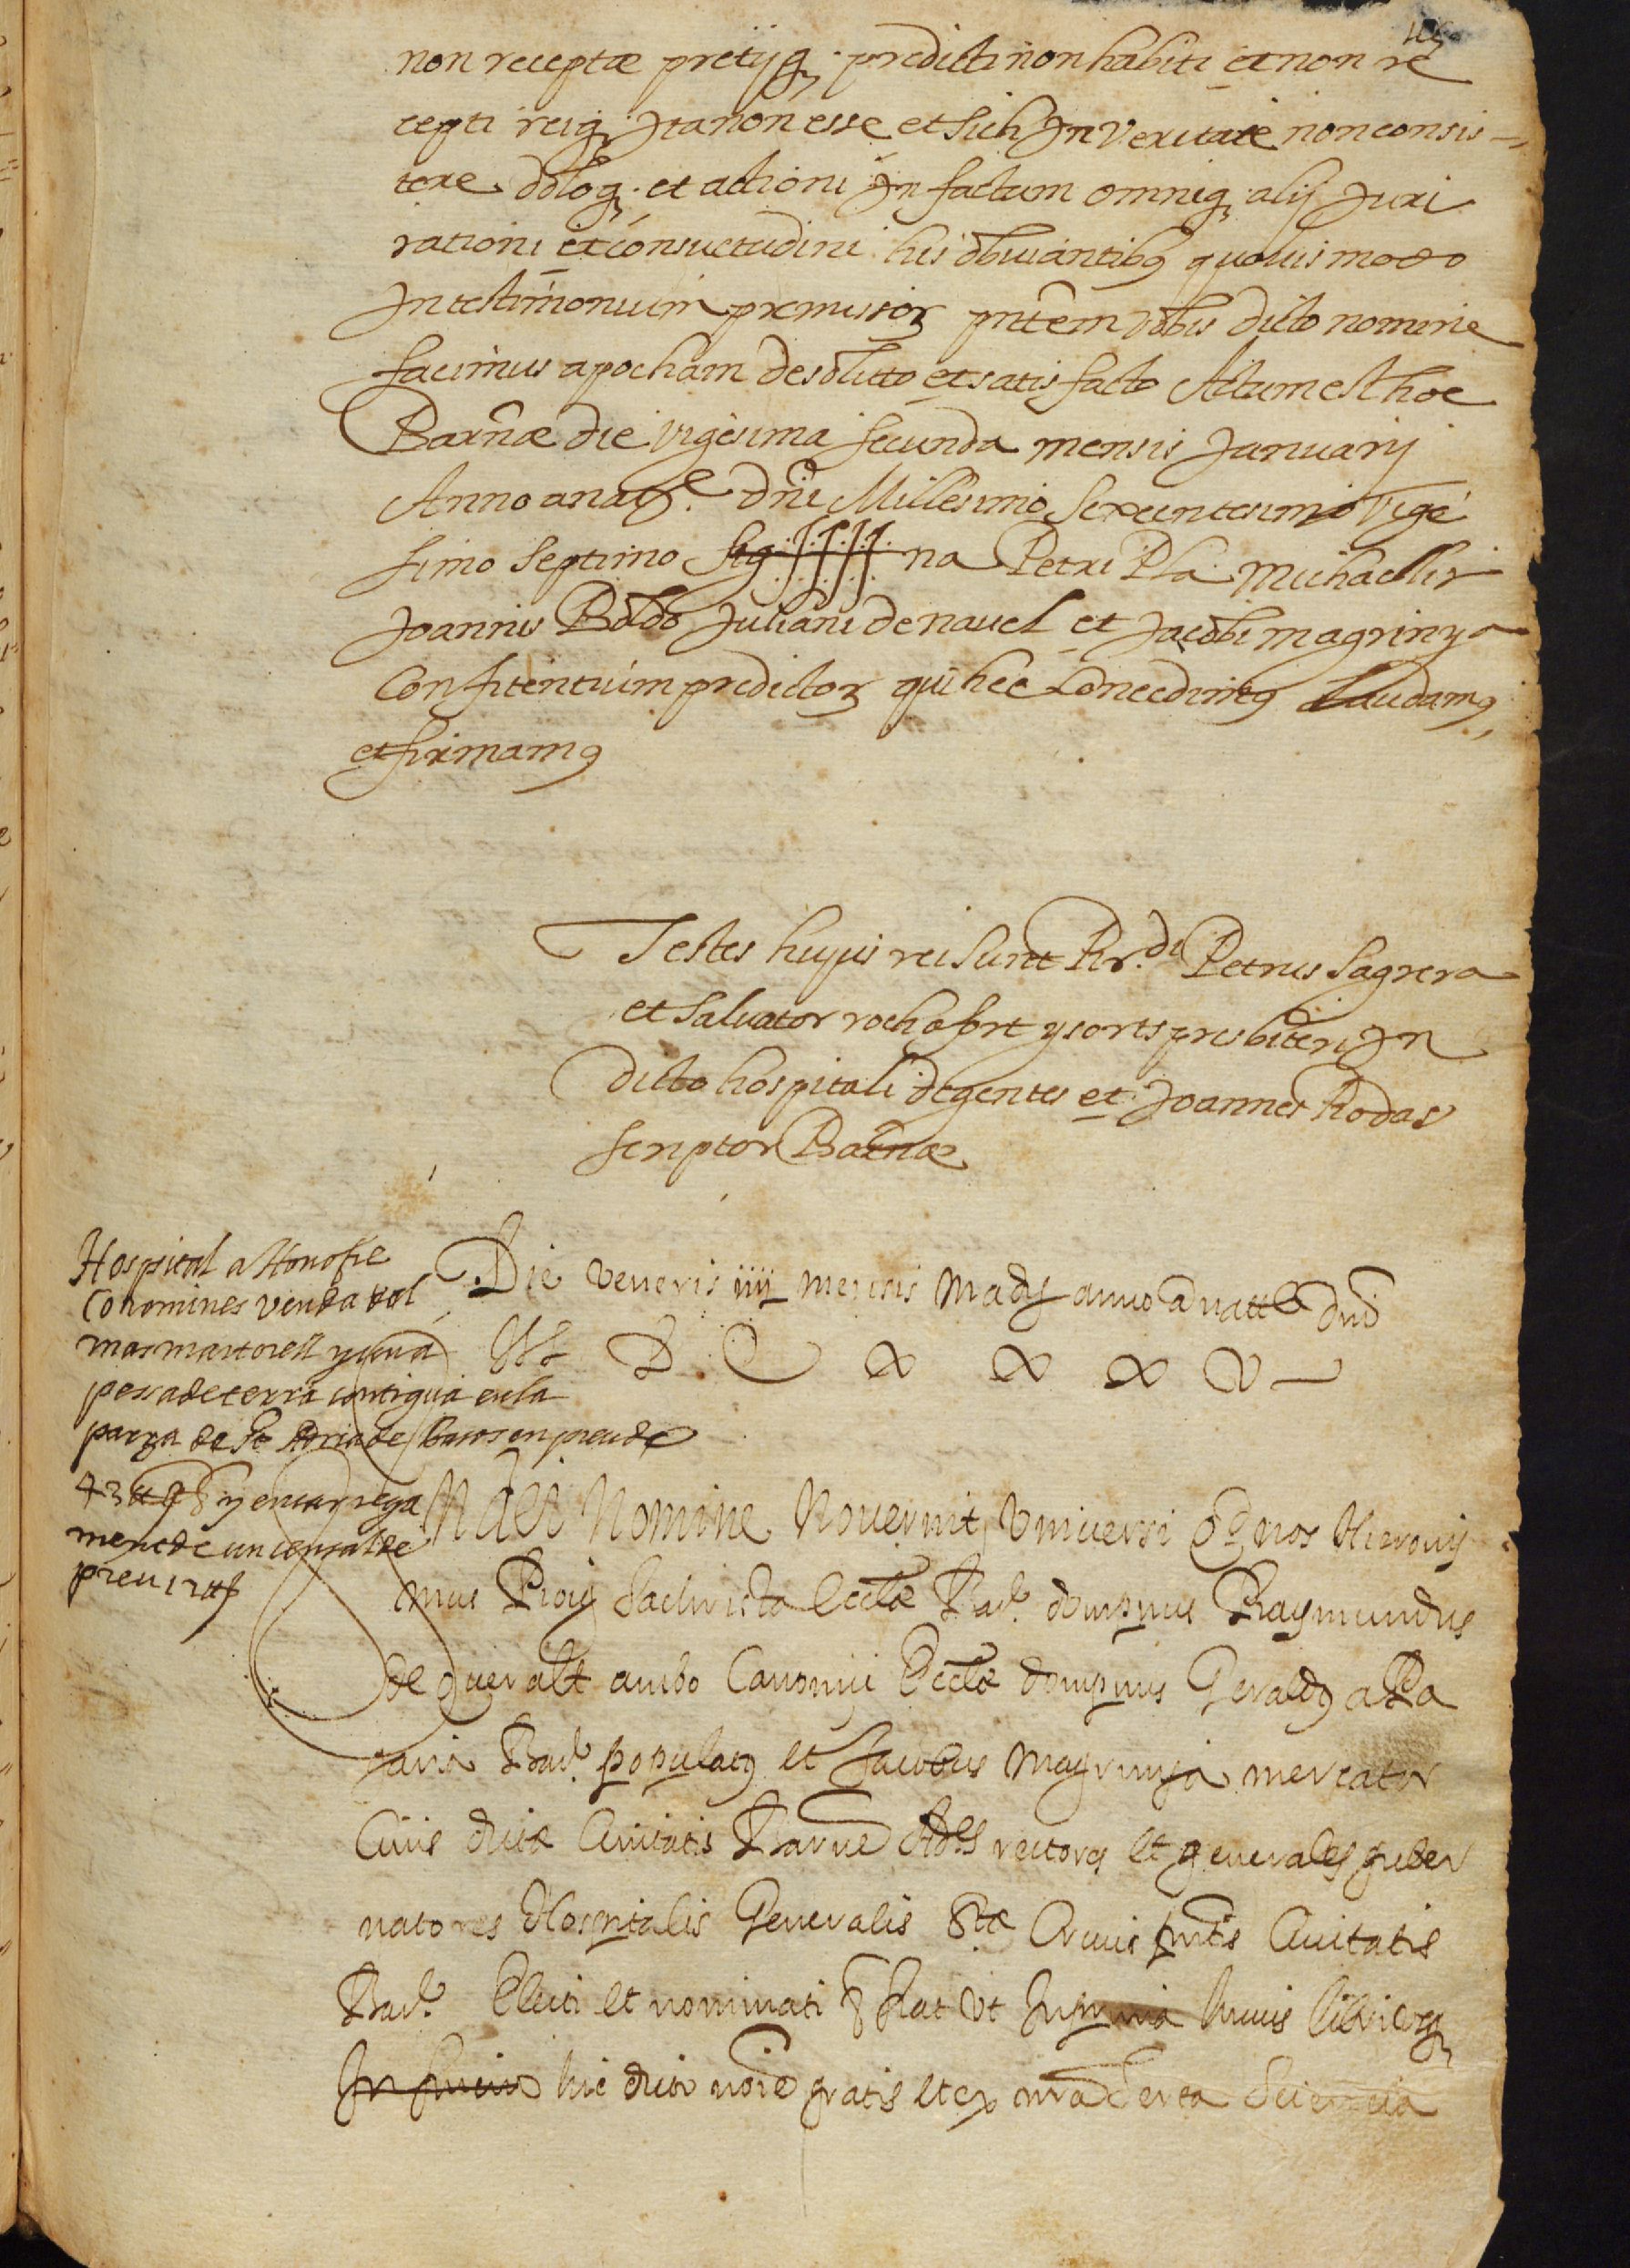 non receptæ pretijq. predicti non habiti et non re
cepti reiq. Ita non esse et sich In Veritate non consis-
tere doloq. et actioni In factum omniq. alij Juri
rationi et consuetudini his obviantibq quovis modo
In testimonium premissor pntem vobis dicto nomine
facimus apocham de soluto et satisfacto Actum est hoc
Barnæ die vigesima secunda mensis Januarij
Anno a nate dni Millesimo Sexcentesimo Vige
simo Septimo Sig na Petri Pla Michaelis
Joannis Boldo Juliani de navel et Jacobi magrinya
Confitentium predictor qui hec Concedimq Laudamq
et firmamq
Testes hujus rei sunt Rr.di Petrus Sagrera
et Salvator rochafort y sorts presbiteri In
dicto hospitali degentes et Joannes Rodas
scriptor Barnæ
Hospital a Honofre
Cohomines venda del
mas martorell y una
pessa de terra contigua en la
parra de St Adria de Besos en preu de
y encarrega
ment de un censal de
preu
Die veneris iiij mensis Madij anno a natte Dni
N dei Nomine Noverint Universi qd nos Hierony
mus Roig Sachrista Eccle Bar. dompnus Raymundus
de queralt ambo Canonici Eccle dompnus Geraldq a Pa
Bar. populatq et Jacobus Magrinya mercator
Civis dicte Civitatis Barne Ades rectores et generales guber
natores Hospitalis Generalis Ste Crucis pntis Civitatis
Bar. Electi et nominati Vt huius libri
hic dicto noie gratis et ex nra Certa Sciencia